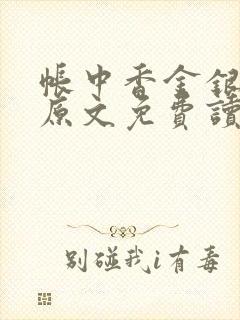 帳中香金銀
原文免費讀
别碰我i有毒